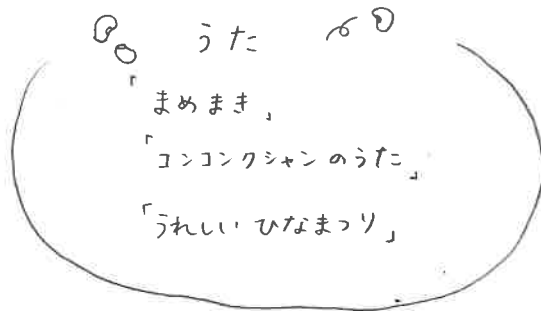 うた
「まめまき」
「コンコンクシャンのうた」
「うれしい ひなまつり」